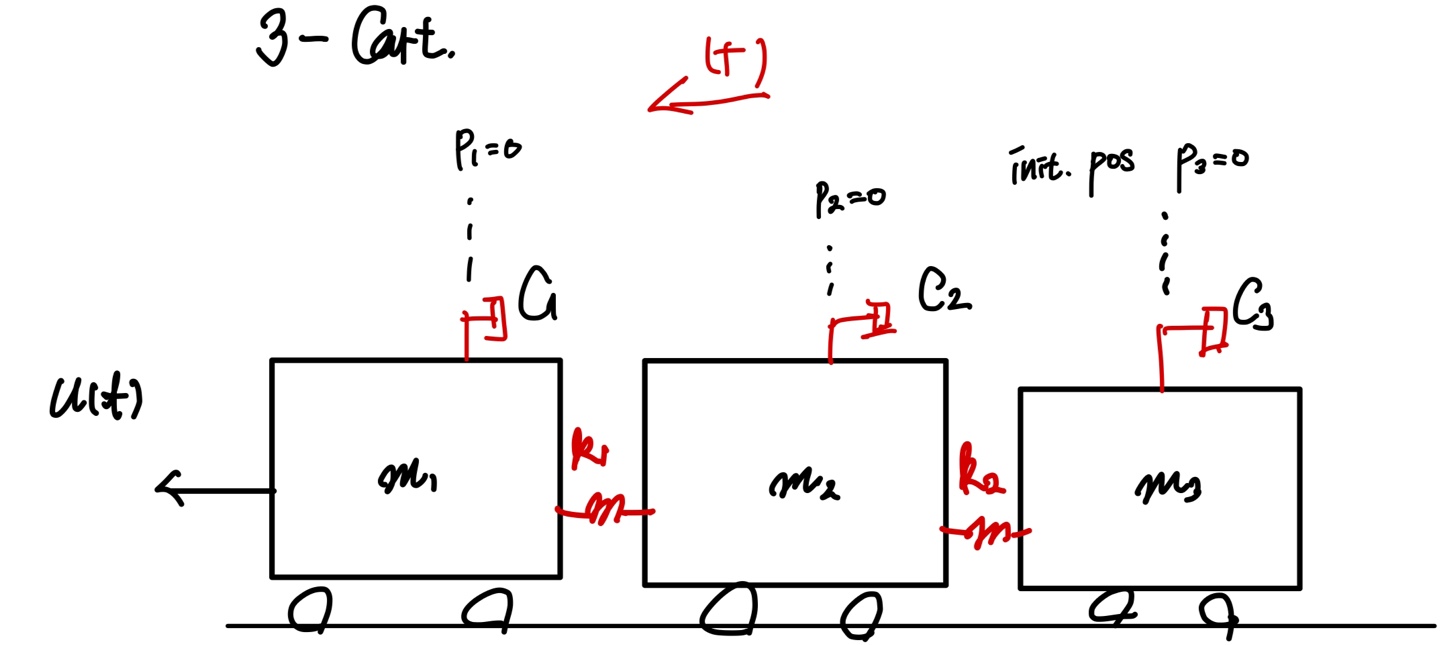 3-Cart.
(+)
P₁=0
P₂=0
init. pos P₃=0
C₁
C₂
C₃
u(t)
m₁
k₁
m₂
k₂
m₃